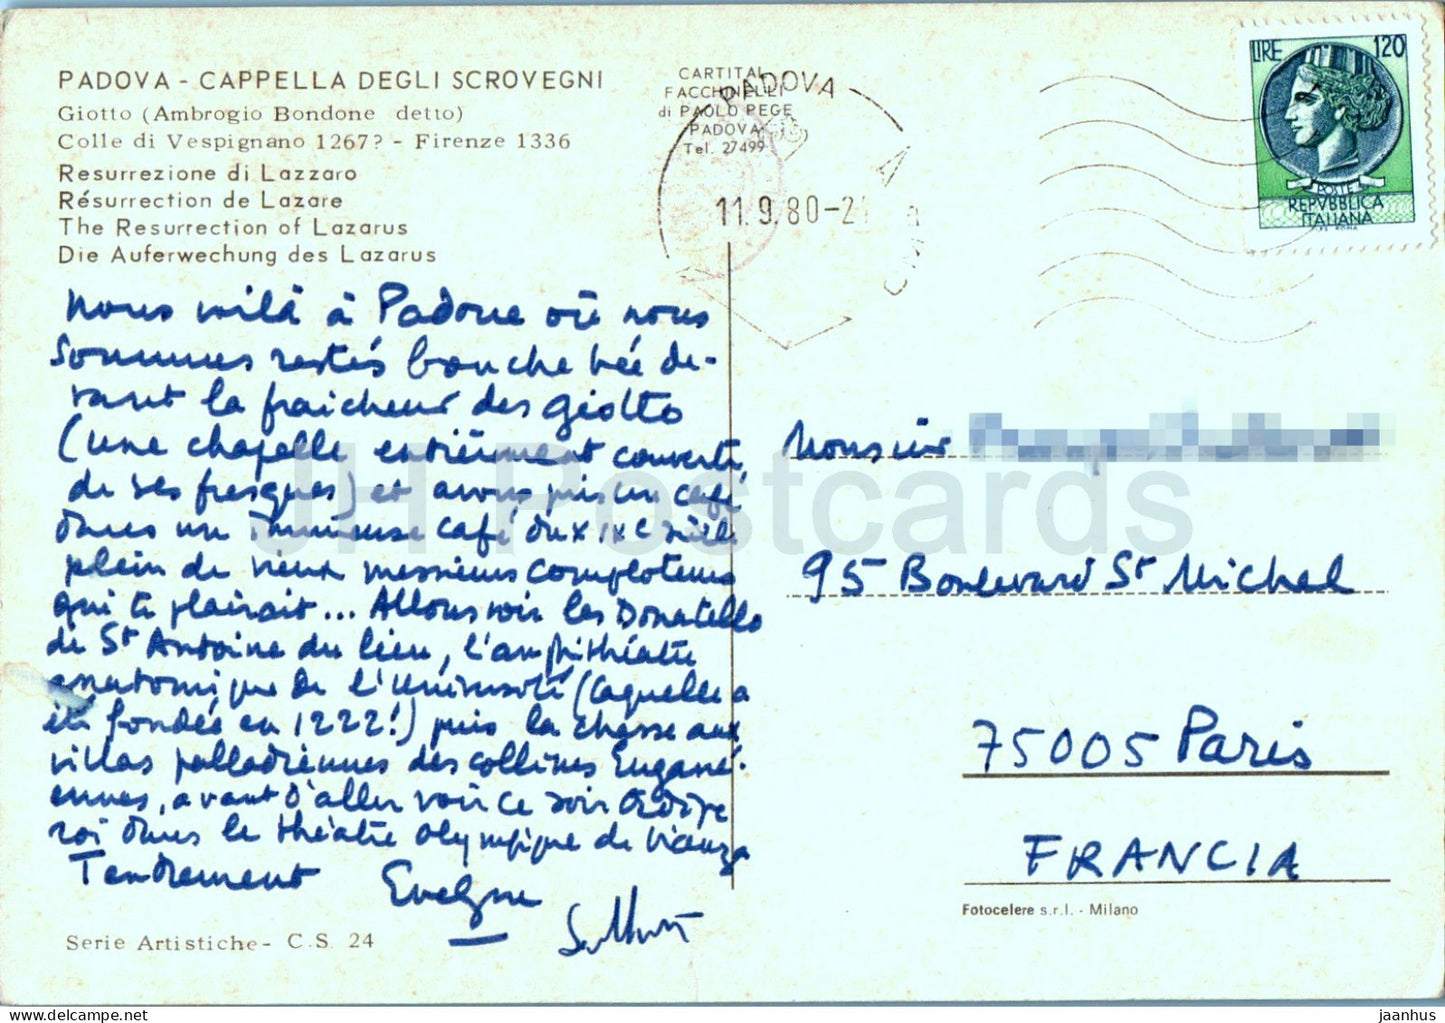 PADOVA - CAPPELLA DEGLI SCROVEGNI
Giotto (Ambrogio Bondone detto)
Colle di Vespignano 1267? - Firenze 1336
Resurrezione di Lazzaro
Résurrection de Lazare
The Resurrection of Lazarus
Die Auferwechung des Lazarus
CARTITAL
FACCHINELLI
di PAOLO PEGE
PADOVA
Tel. 27499
PADOVA
11.9.80-2
LIRE 120
POSTE
REPVBBLICA
ITALIANA
Nous voilà à Padoue où nous
sommes restés bouche bée de-
vant la fraicheur des giotto
(une chapelle entièrement couverte
de ses fresques) et avons pris un café
dans un immense café du XIXe siècle
plein de vieux messieurs comploteurs
qui te plairait... Allons voir les Donatello
de St Antoine du lieu, l'amphithéatre
anatomique de l'Université (laquelle a
été fondée en 1222!) puis la chasse aux
villas palladiennes des collines Eugané-
ennes, avant d'aller voir ce soir Œdipe
roi dans le théatre olympique de Vicenza
Tendrement Evelyne
Monsieur
95 Boulevard St Michel
75005 Paris
FRANCIA
Fotocelere s.r.l. - Milano
Serie Artistiche - C.S. 24
JH Postcards
jaanhus